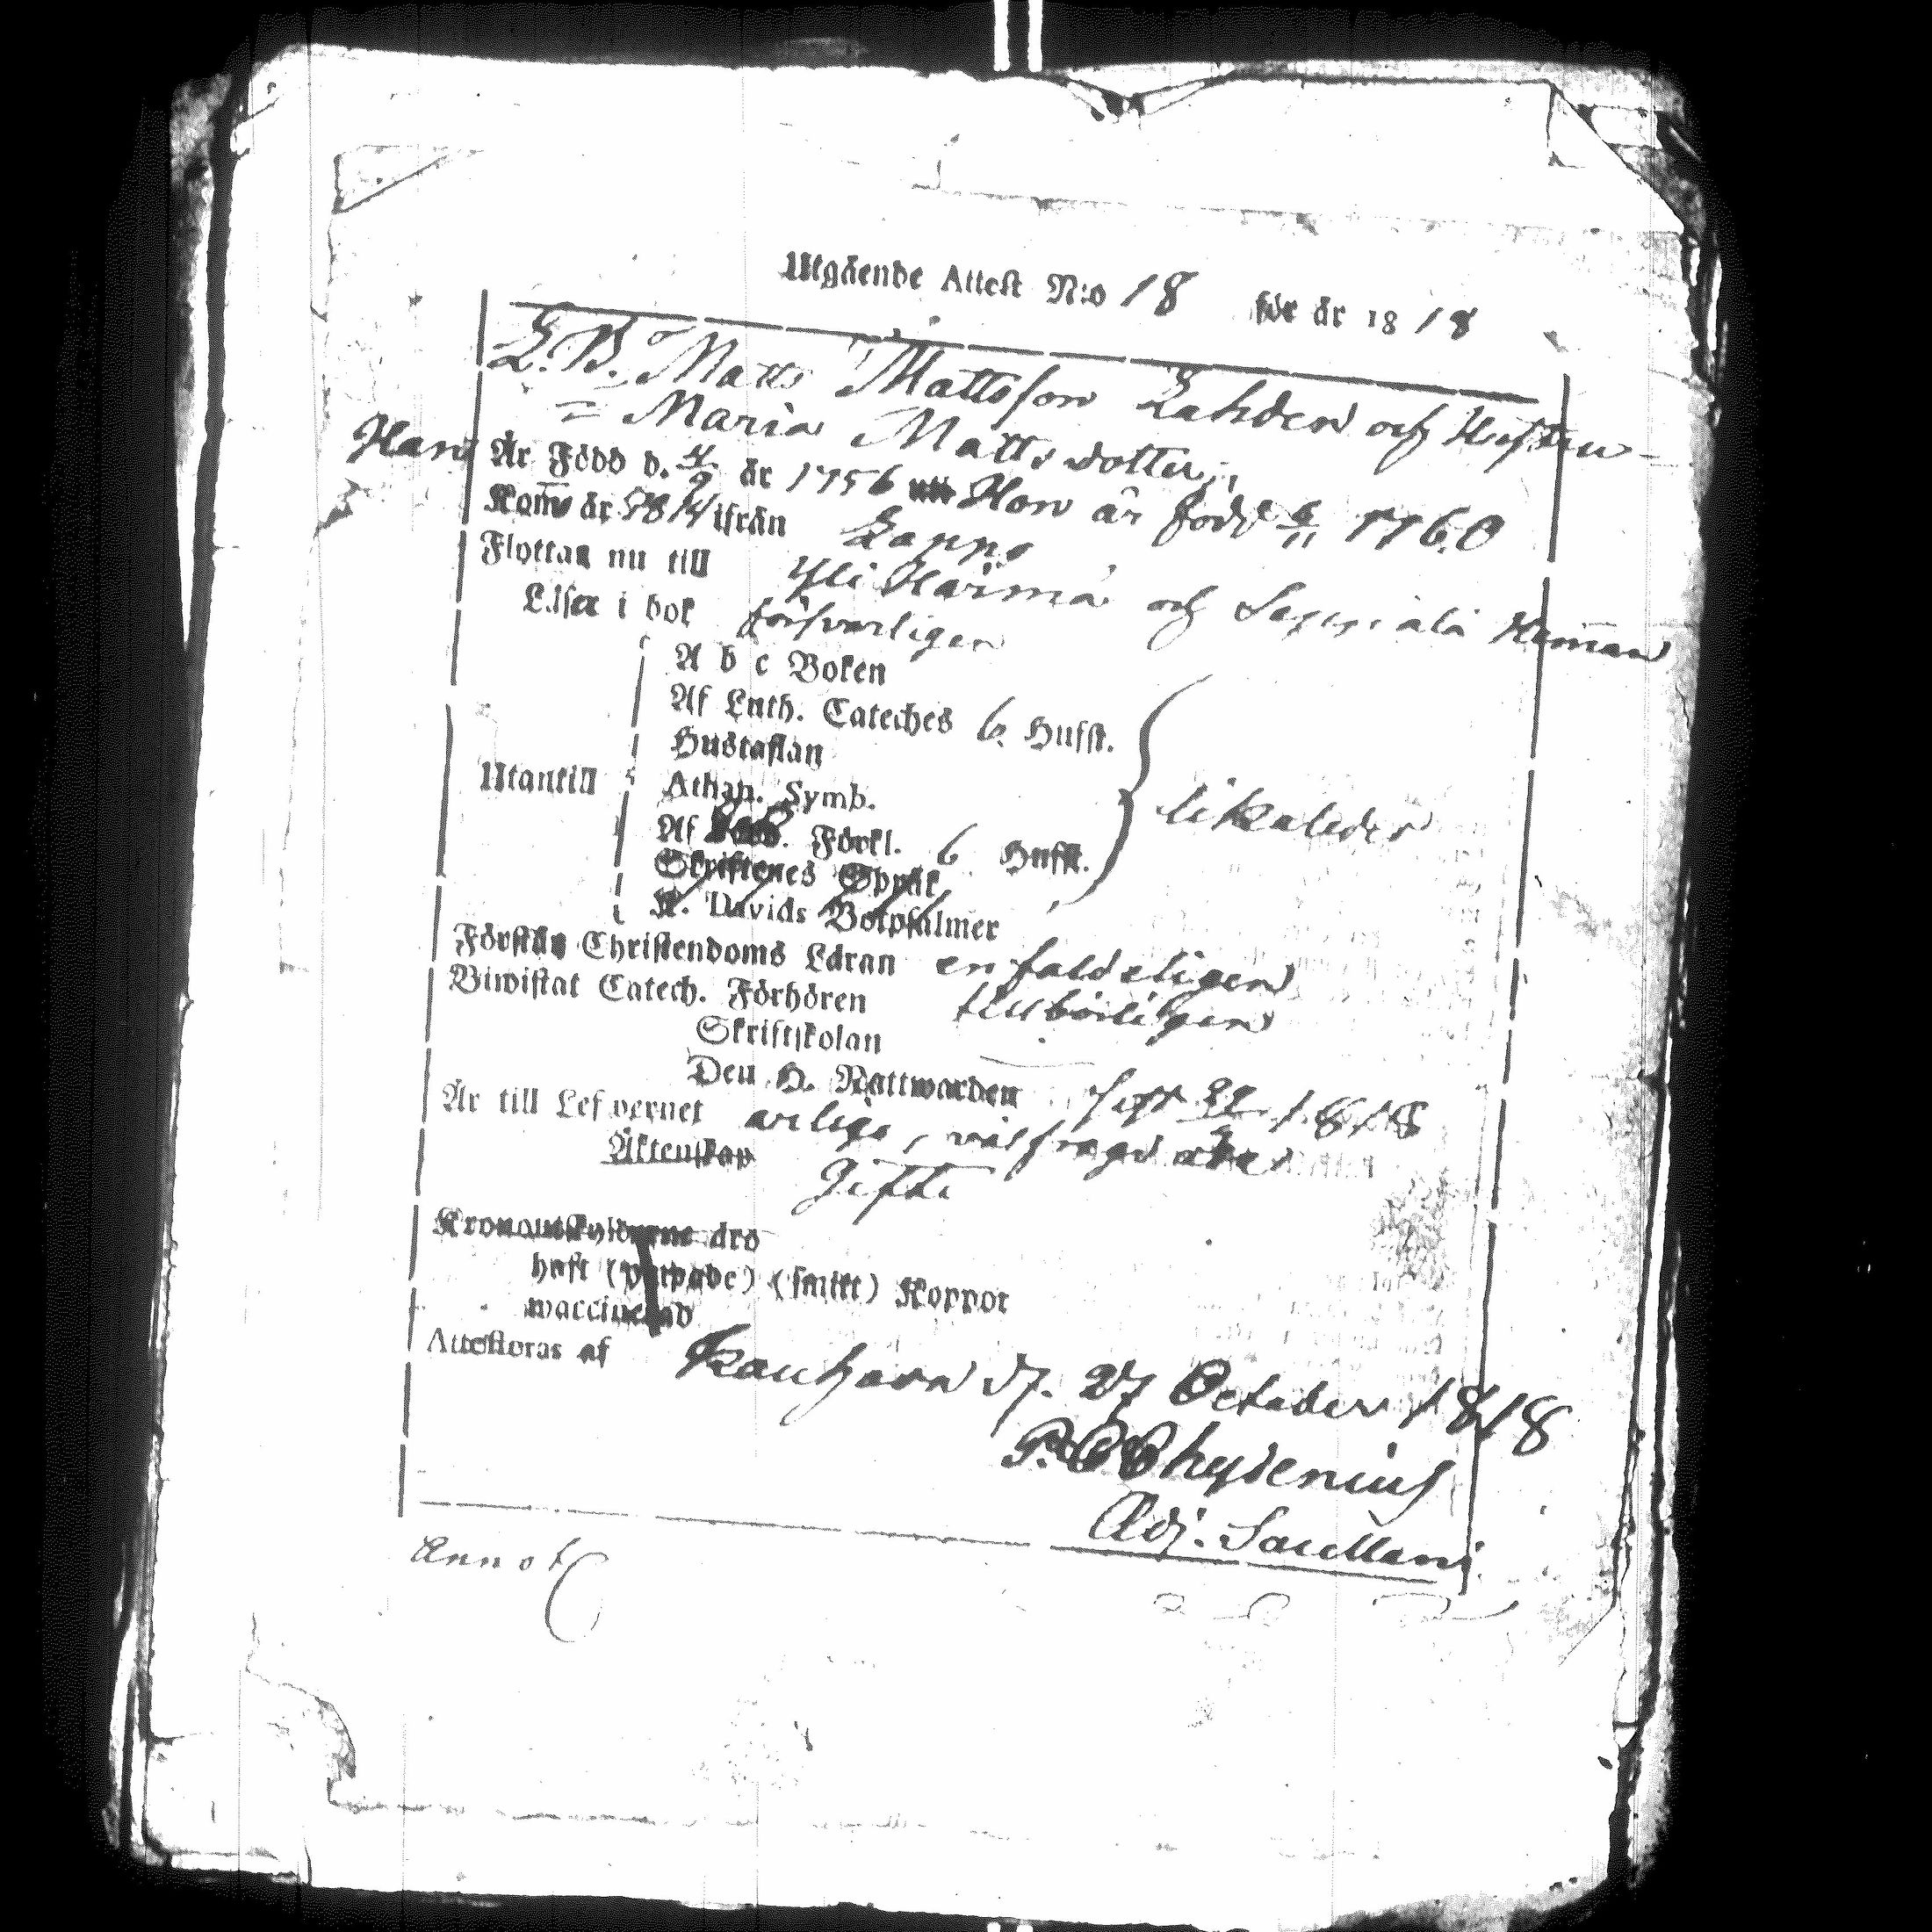 Utgående Attest N:o 18 för år 1818
L.B. Matts Mattsson Lahden och Hustru
= Maria Matts dotter,
Han Är Född d. 4/9 år 1756 Hon är född 6/11 1760
Kom år 1814 ifrån Lappo
Flyttar nu till Yli Härmä och Seppälä Hemman
Läser i bok försvarligen
A b c Boken
Af Luth. Cateches 6 Hufst.
Hustaflan
Utantill Athan. Symb. likaledes
Af Förkl. 6 Hufst.
Skriftenes Språk
K. Davids Botpsalmer
Förstår Christendoms Läran enfaldeligen
Biwistat Catech. Förhören tillbörligen
Skriftskolan
Den H. Nattwarden Sept 1818
Är till Lefvernet ärliga, välfragd
Äktenskap Gifte
Kronoutskylderne dro
haft (ympade) (smitt) Koppor
waccinerad
Attesteras af Kauhava d. 27 October 1818
P. Chydenius
Adj. Sacellani
Annot